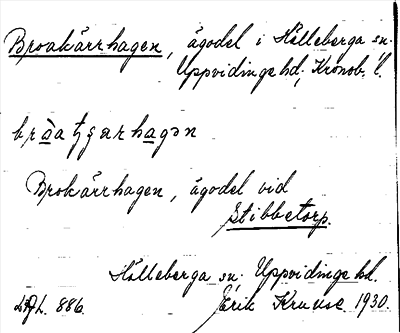 Broakärrhagen, ägodel i Hälleberga sn.
Uppvidinge hd, Kronob. l.
bråatʒærhagən
Brokärrhagen, ägodel vid
Stibbetorp.
Hälleberga sn. Uppvidinge hd.
886. Erik Kruuse 1930.